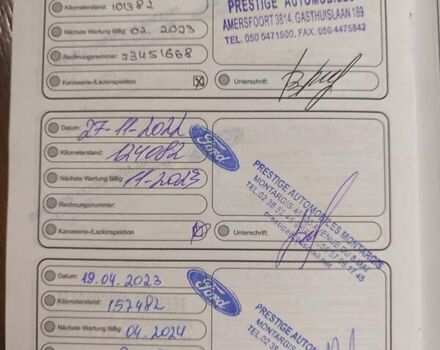 Kilometerstand: 101382
Nächste Wartung fällig: 02. 2023
Rechnungsnummer: 23451668
Karosserie-/Lackinspektion
PRESTIGE AUTOMOBILES
AMERSFOORT 3814. GASTHUISLAAN 189
TEL. 050 5471500, FAX. 050 5475842
Unterschrift:
Datum: 27-11-2022
Kilometerstand: 124082
Nächste Wartung fällig: 11-2023
Rechnungsnummer:
Karosserie-/Lackinspektion
Ford
PRESTIGE AUTOMOBILES MONTARGIS
MONTARGIS 45 AVENUE DU 8 MAI
TEL.02 38
Unterschrift:
Datum: 19.04.2023
Kilometerstand: 157482
Nächste Wartung fällig: 04.2024
Ford
PRESTIGE AUTOMOBILES
MONTARGIS
TEL.02 38